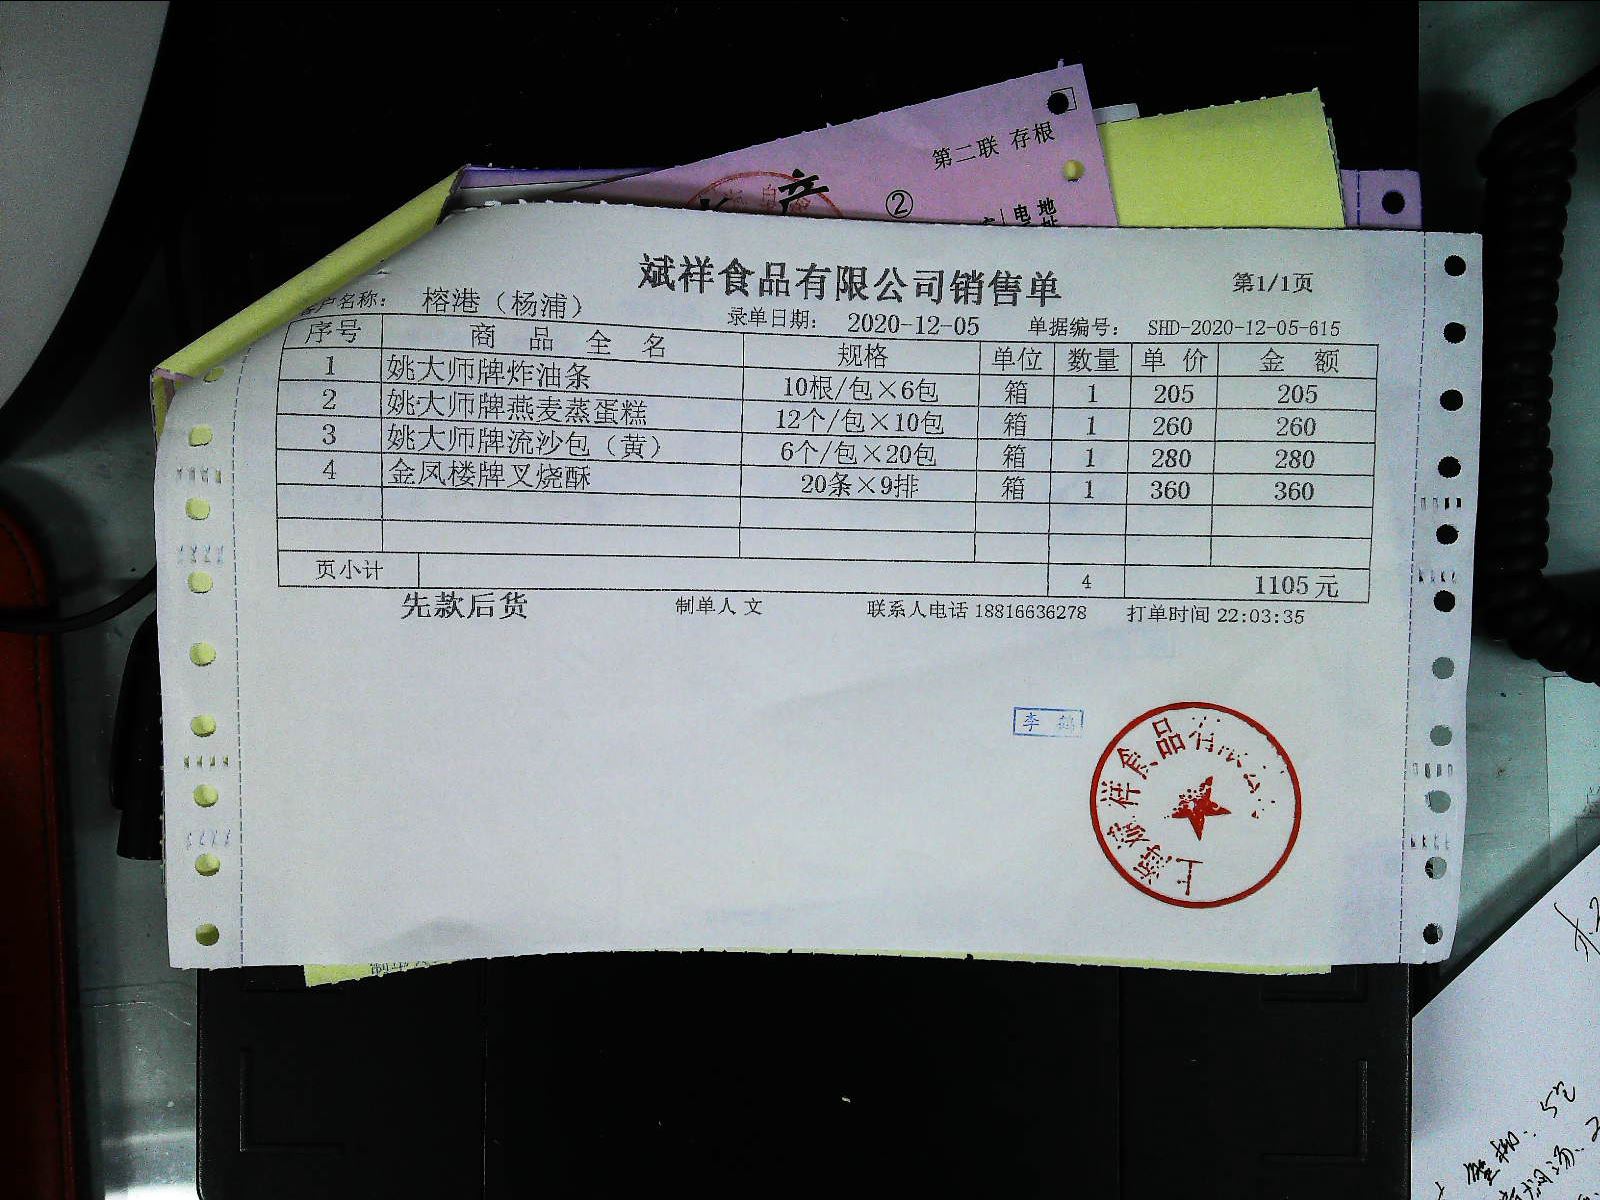 第二联 存根
②
电 地
斌祥食品有限公司销售单
第1/1页
客户名称： 榕港（杨浦）
录单日期： 2020-12-05
单据编号： SHD-2020-12-05-615
序号 商 品 全 名 规格 单位 数量 单 价 金 额
1 姚大师牌炸油条 10根/包×6包 箱 1 205 205
2 姚大师牌燕麦蒸蛋糕 12个/包×10包 箱 1 260 260
3 姚大师牌流沙包（黄） 6个/包×20包 箱 1 280 280
4 金凤楼牌叉烧酥 20条×9排 箱 1 360 360
页小计 4 1105元
先款后货 制单人 文 联系人电话 18816636278 打单时间 22:03:35
李
上海斌祥食品有限公司